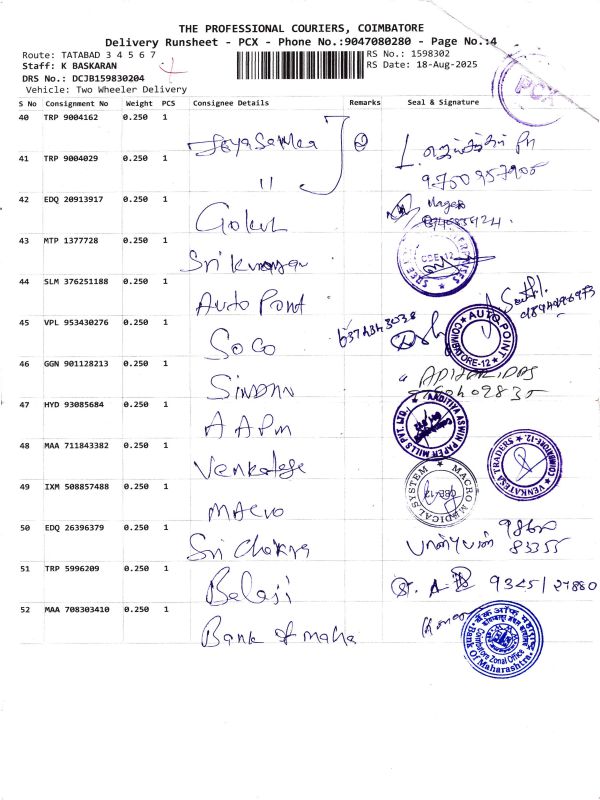 THE PROFESSIONAL COURIERS, COIMBATORE
Delivery Runsheet - PCX - Phone No.:9047080280 - Page No.:4
Route: TATABAD 3 4 5 6 7
RS No.: 1598302
Staff: K BASKARAN
RS Date: 18-Aug-2025
DRS No.: DCJB159830204
Vehicle: Two Wheeler Delivery
PCX
S No Consignment No Weight PCS Consignee Details Remarks Seal & Signature
40 TRP 9004162 0.250 1
41 TRP 9004029 0.250 1 "
42 EDQ 20913917 0.250 1 Gokul
43 MTP 1377728 0.250 1 Sri
CDE-12
44 SLM 376251188 0.250 1 Auto Point
AUTO POINT COIMBATORE-12
45 VPL 953430276 0.250 1 SoCo
46 GGN 901128213 0.250 1
47 HYD 93085684 0.250 1 AAPM
AADITIYA ASWIN PAPER MILLS PVT. LTD.
48 MAA 711843382 0.250 1 Venkatesa
VENKATESA TRADERS COIMBATORE-12.
49 IXM 508857488 0.250 1 Macro
MACRO MEDICAL SYSTEM CBE-12
50 EDQ 26396379 0.250 1 Sri Chakra
பாண்டியன் 9860
83355
51 TRP 5996209 0.250 1 Balaji
9345127880
52 MAA 708303410 0.250 1 Bank of maha
बैंक ऑफ महाराष्ट्र
Coimbatore Zonal Office
Bank Of Maharashtra